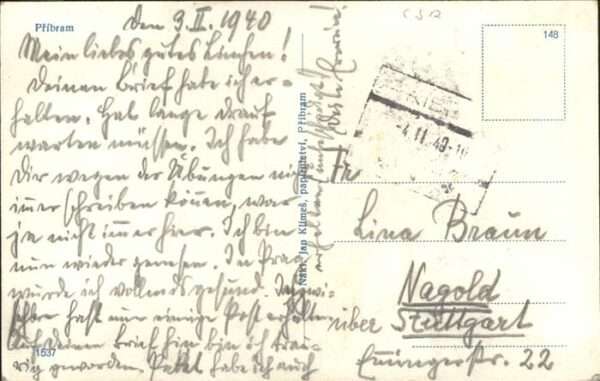 Příbram
den 3. II. 1940
Mein liebes gutes Linchen!
Deinen Brief habe ich er-
halten. Hab lange drauf
warten müssen. Ich habe
Dir wegen der Übungen nicht
immer schreiben können, war
ja nicht immer hier. Ich bin
nun wieder genesen. In Prag
wurde ich vollends gesund. Inzwi-
schen hast nun einige Post erhalten
Auf deinen Brief hin bin ich trau-
rig geworden. Paket habe ich auch
erhalten
Erwin!
1537
Nakl. Jan Klimeš, papírnictví, Příbram
148
4. II. 40
Fr
Lina Braun
Nagold
über Stuttgart
Emmingerstr. 22